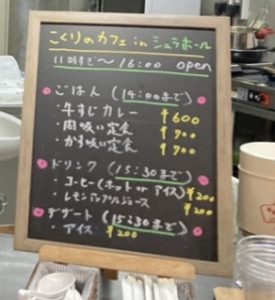 こくりのカフェ in シュラホール
11時すぎ〜16:00 open
ごはん (14:00まで)
・牛すじカレー ¥600
・肉吸い定食 ¥700
・かす吸い定食 ¥700
ドリンク (15:30まで)
・コーヒー(ホット or アイス) ¥200
・レモンアップルジュース ¥200
デザート (15:30まで)
・アイス ¥200